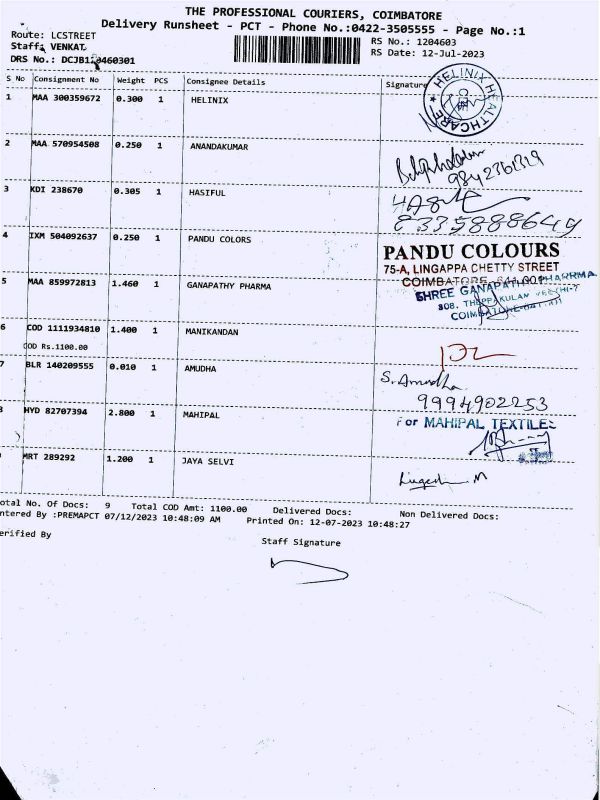 THE PROFESSIONAL COURIERS, COIMBATORE
Delivery Runsheet - PCT - Phone No.:0422-3505555 - Page No.:1
Route: LCSTREET
RS No.: 1204603
Staff: VENKAT
RS Date: 12-Jul-2023
DRS No.:
S No Consignment No Weight PCS Consignee Details Signature
HELINIX HEALTHCARE
1 MAA 300359672 0.300 1 HELINIX
2 MAA 570954508 0.250 1 ANANDKUMAR
3 KDI 238670 0.305 1 HASIFUL
8335888649
4 IXM 504092637 0.250 1 PANDU COLORS
PANDU COLOURS
75-A, LINGAPPA CHETTY STREET
COIMBATORE
5 MAA 859972813 1.460 1 GANAPATHY PHARMA
SHREE GANAPATHY PHARRMA
6 COD 1111934810 1.400 1 MANIKANDAN
COD Rs.1100.00
7 BLR 140209555 0.010 1 AMUDHA
S. Amudha
9994902253
HYD 82707394 2.800 1 MAHIPAL
For MAHIPAL TEXTILES
MRT 289292 1.200 1 JAYA SELVI
otal No. Of Docs: 9 Total COD Amt: 1100.00 Delivered Docs: Non Delivered Docs:
ntered By :PREMAPCT 07/12/2023 10:48:09 AM Printed On: 12-07-2023 10:48:27
erified By
Staff Signature